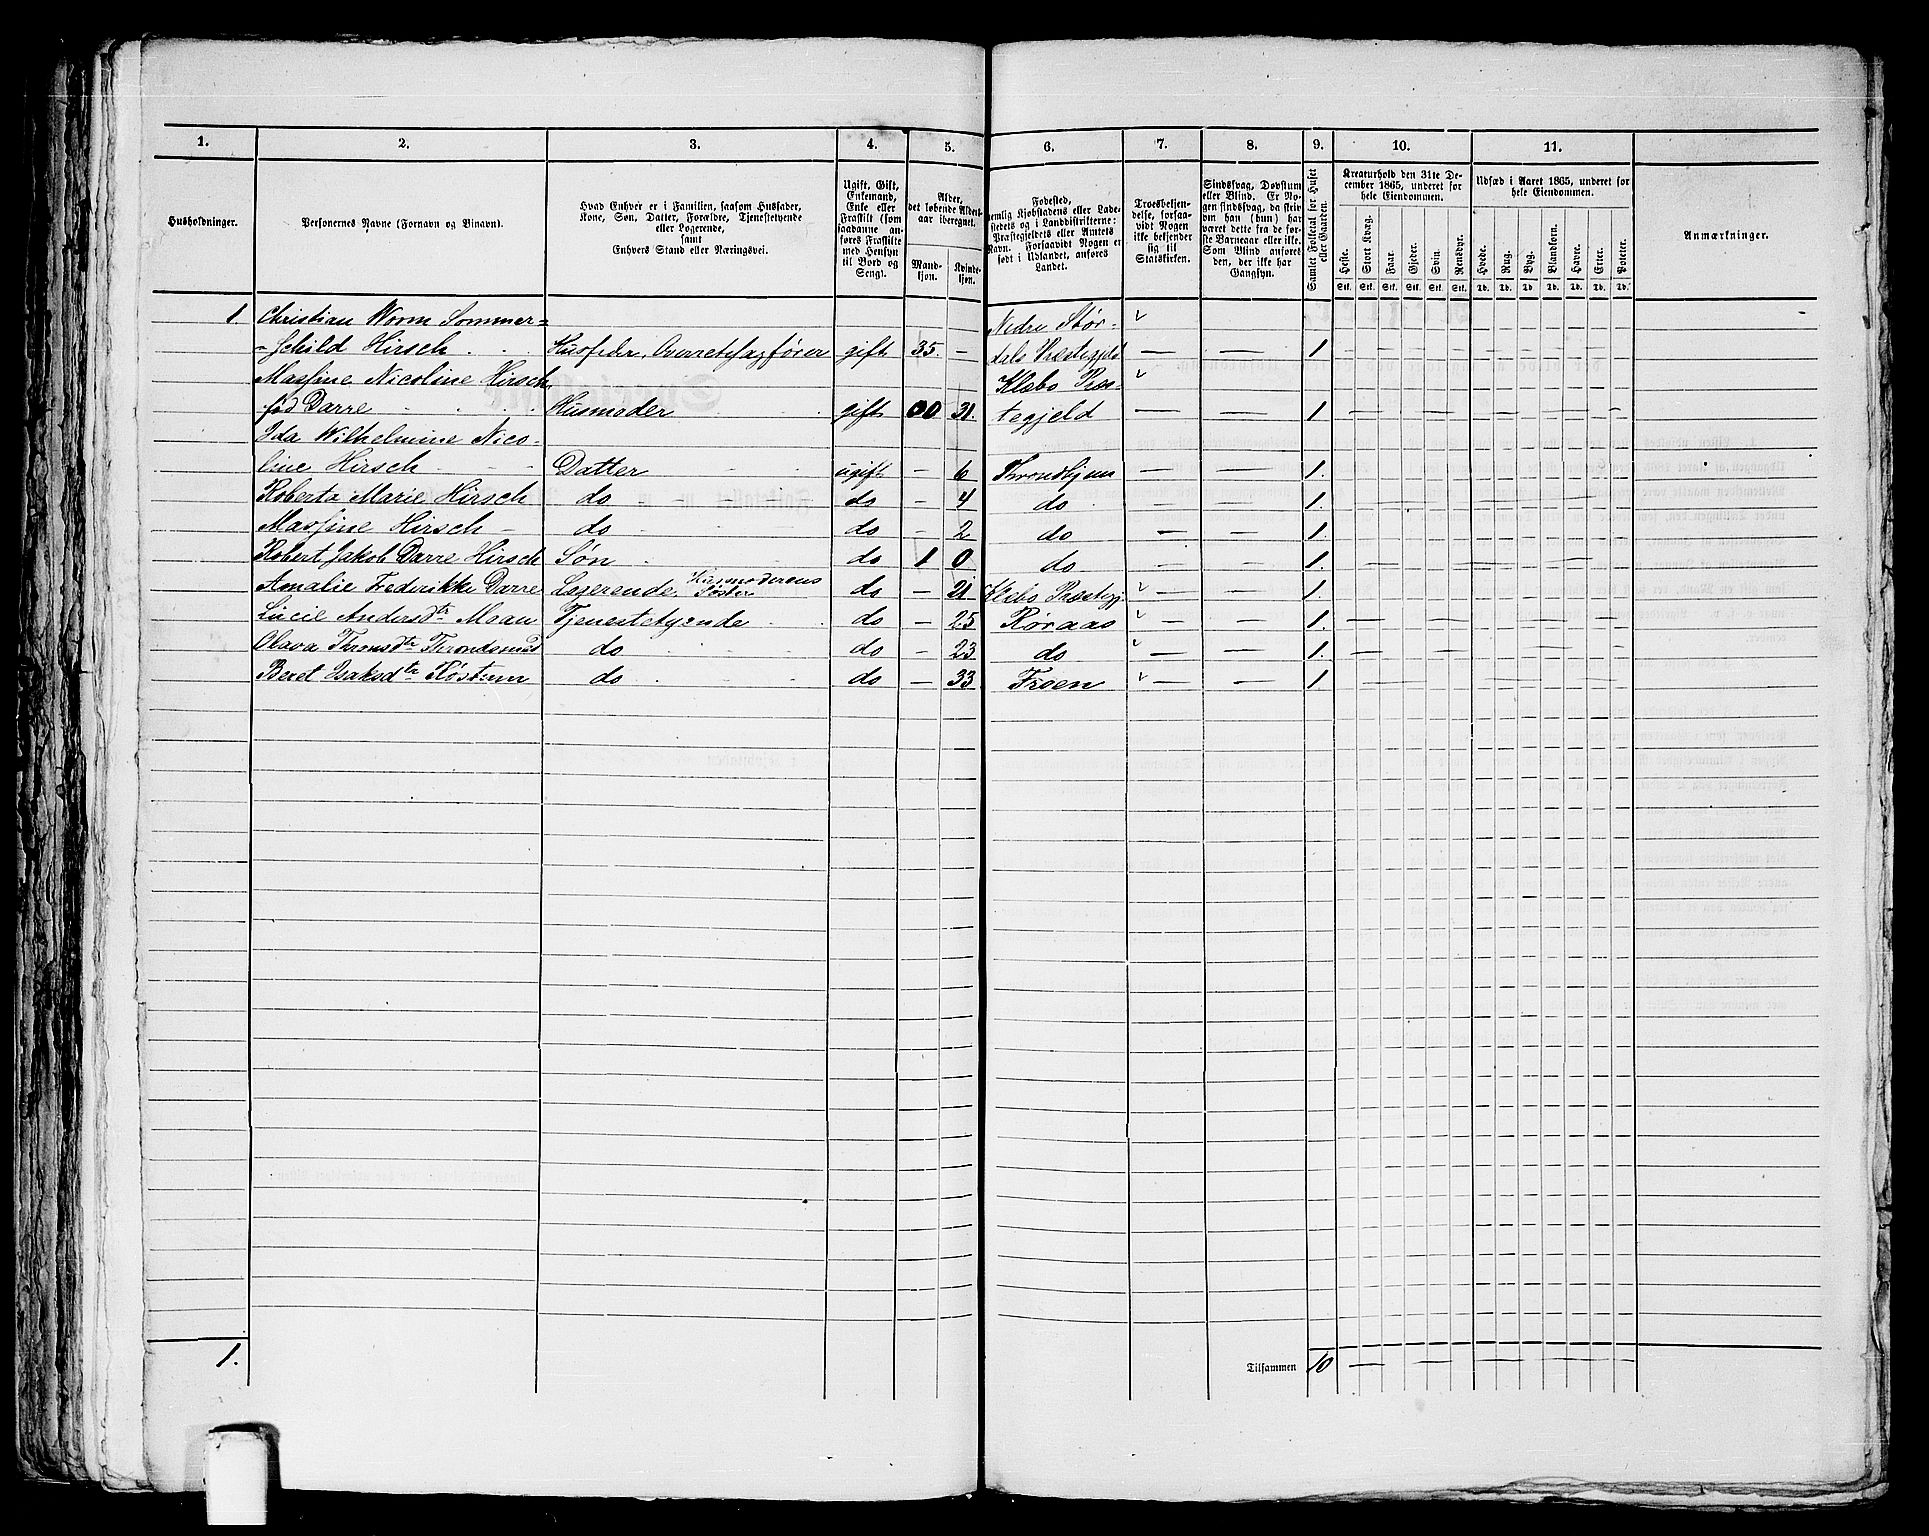 1. 2. 3. 4. 5. 6. 7. 8. 9. 10. 11.
Husholdninger.
Personernes Navne (Fornavn og Binavn).
Hvad Enhver er i Familien, saasom Husfader,
Kone, Søn, Datter, Forældre, Tjenestetyende
eller Logerende,
samt
Enhvers Stand eller Næringsvei.
Ugift, Gift,
Enkemand,
Enke eller
Fraskilt (som
saadanne an-
føres Fraskilte
med Hensyn
til Bord og
Seng).
Alder,
det løbende Alders-
aar iberegnet.
Mand-
kjøn.
Kvinde-
kjøn.
Fødested,
nemlig Kjøbstadens eller Lade-
stedets og i Landdistrikterne:
Præstegjeldets eller Amtets
Navn. Forsaavidt Nogen er
født i Udlandet, anføres
Landet.
Troesbekjen-
delse, forsaa-
vidt Nogen
ikke bekjender
sig til
Statskirken.
Sindssvag, Døvstum
eller Blind. Er No-
gen sindssvag, da skri-
ves om han (hun) har
været dette fra de før-
ste Barneaar eller ikke.
Som Blind anføres
den, der ikke har
Gangsyn.
Samlet Folketal for Huset
eller Gaarden.
Kreaturhold den 31te De-
cember 1865, underet for
hele Eiendommen.
Heste. Stort Kvæg. Faar. Gjeder. Svin. Rensdyr.
Stk. Stk. Stk. Stk. Stk. Stk.
Udsæd i Aaret 1865, underet for
hele Eiendommen.
Hvede. Rug. Byg. Blandkorn. Havre. Erter. Poteter.
Td. Td. Td. Td. Td. Td. Td.
Anmærkninger.
1. Christian Worm Sommer= Nedre Stør-
-schild Hirsch Husfader, Overretssagfører gift 35. — dals Præstegjeld — — 1 — — — — — — — — — — — — —
Massine Nicoline Hirsch Klæbo Præs-
fød Darre Husmoder gift 00 31. tegjeld — — 1. — — — — — — — — — — — — —
Ida Wilhelmine Nico-
line Hirsch Datter ugift — 6 Throndhjem — — 1.
Roberta Marie Hirsch do do — 4 do — — 1.
Massine Hirsch do do — 2 do — — 1.
Robert Jakob Darre Hirsch Søn do 1 0 do — — 1.
Amalie Frederikke Darre Logerende, Husmoderens Søster do — 21 Klæbo Præstegj. — — 1.
Lucie Andersdtr Moan Tjenestetyende do — 25 Røraas — — 1.
Olava Thronsdtr do do — 23 do — — 1.
Beret Isaksdtr do do — 33 Froen — — 1
1. Tilsammen 10